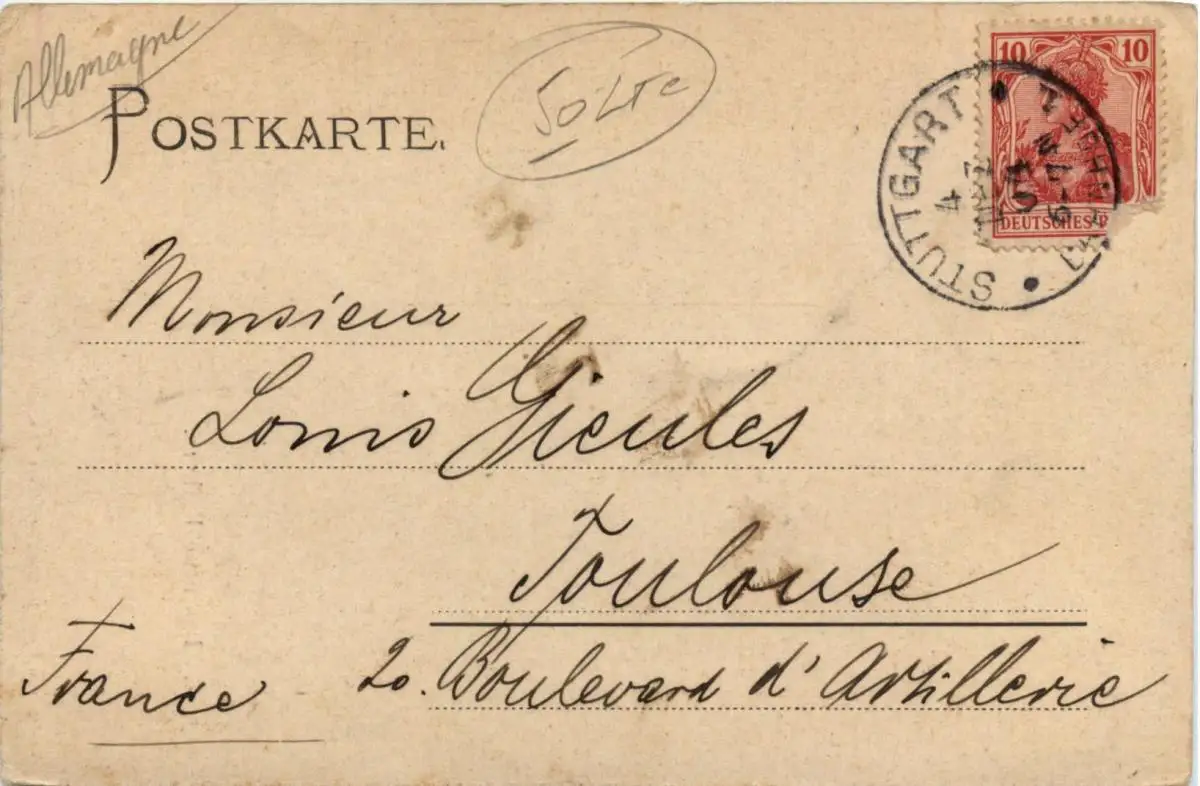 Allemagne
POSTKARTE.
50 LTC
10 10
DEUTSCHES R
STUTTGART
Monsieur
Louis Gieules
Toulouse
France 20. Boulevard d'Artillerie